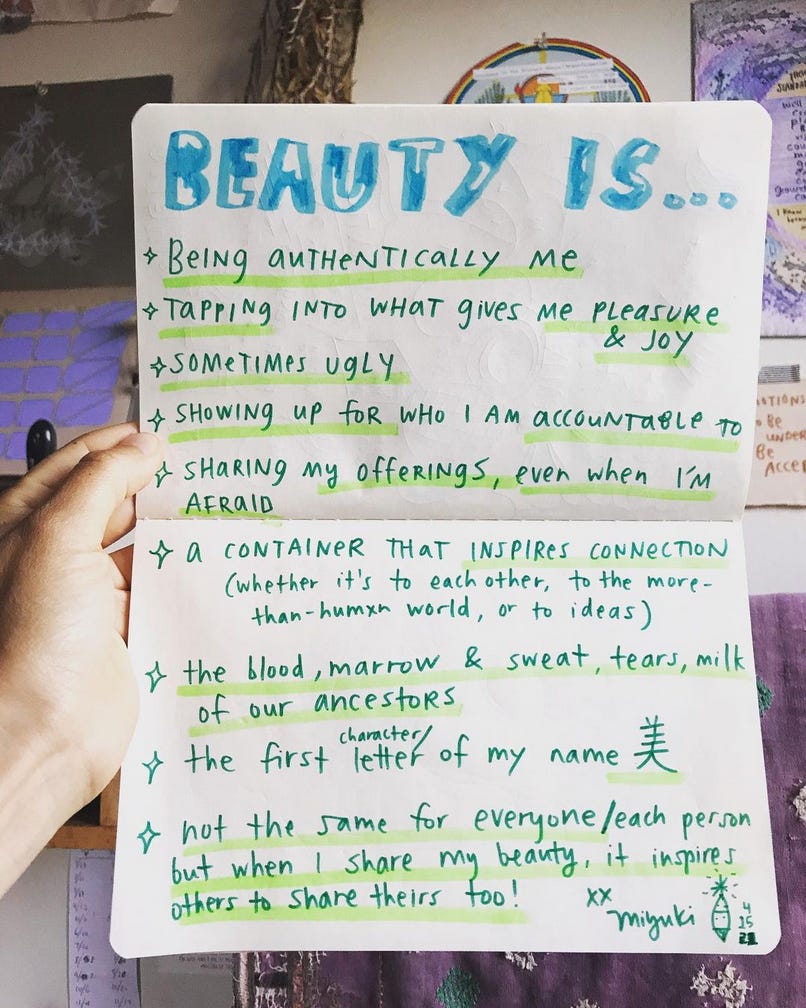 BEAUTY IS...
BEING AUTHENTICALLY ME
TAPPING INTO WHAT GIVES ME PLEASURE
& JOY
SOMETIMES UGLY
SHOWING UP FOR WHO I AM ACCOUNTABLE TO
SHARING MY OFFERINGS, EVEN WHEN I'M
AFRAID
A CONTAINER THAT INSPIRES CONNECTION
(whether it's to each other, to the more-
than-humxn world, or to ideas)
the blood, marrow & sweat, tears, milk
of our ancestors
the first character/letter of my name 美
not the same for everyone/each person
but when I share my beauty, it inspires
others to share theirs too!
xx
miyuki
4
25
21
BE
UNDER
BE
ACCEP